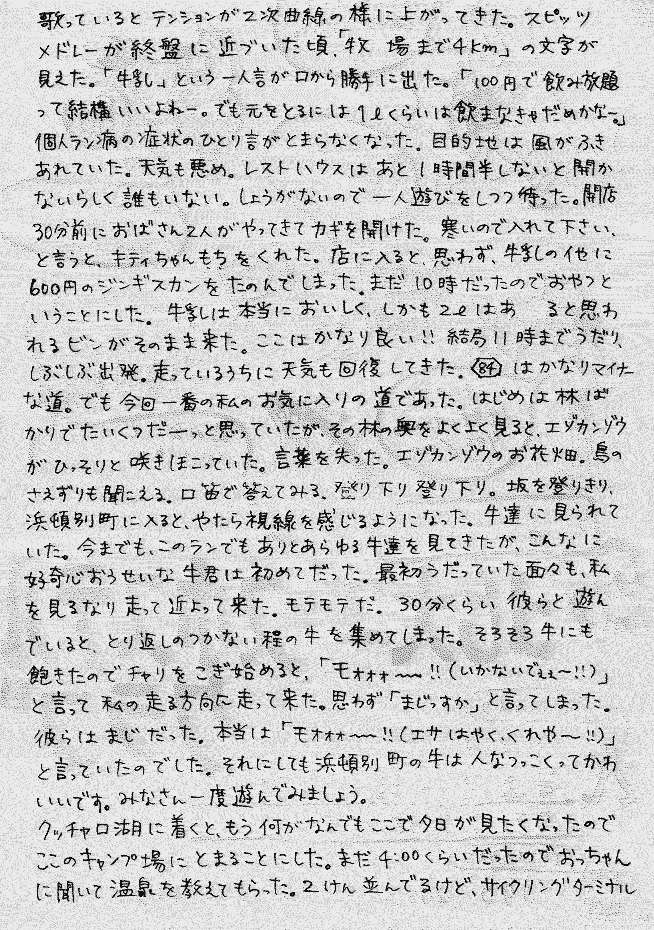 歌っていると テンションが2次曲線の様に上がってきた。スピッツ
メドレーが終盤に近づいた頃、「牧 場まで4km」の文字が
見えた。「牛乳」という一人言が口から勝手に出た。「100円で飲み放題
って結構いいよねー。でも元をとるには1ℓくらいは飲まなきゃだめかなー。」
個人ラン病の症状のひとり言がとまらなくなった。目的地は風がふき
あれていた。天気も悪め。レストハウスはあと1時間半しないと開か
ないらしく誰もいない。しょうがないので一人遊びをしつつ待った。開店
30分前におばさん2人がやってきてカギを開けた。寒いので入れて下さい、
と言うと、キティちゃんもちをくれた。店に入ると、思わず、牛乳の他に
600円のジンギスカンをたのんでしまった。まだ10時だったのでおやつと
いうことにした。牛乳は本当においしく、しかも2ℓはあ ると思わ
れるビンがそのまま来た。ここはかなり良い!! 結局11時までうだり、
しぶしぶ出発。走っているうちに天気も回復してきた。84はかなりマイナー
な道。でも今回一番の私のお気に入りの道であった。はじめは林ば
かりでたいくつだーっと思っていたが、その林の奥をよくよく見ると、エゾカンゾウ
がひっそりと咲きほこっていた。言葉を失った。エゾカンゾウのお花畑。鳥の
さえずりも聞こえる。口笛で答えてみる。登り下り登り下り。坂を登りきり、
浜頓別町に入ると、やたら視線を感じるようになった。牛達に見られて
いた。今までも、このランでもありとあらゆる牛達を見てきたが、こんなに
好奇心おうせいな牛君は初めてだった。最初うだっていた面々も、私
を見るなり走って近よって来た。モテモテだ。30分くらい彼らと遊ん
でいると、とり返しのつかない程の牛を集めてしまった。そろそろ牛にも
飽きたのでチャリをこぎ始めると、「モォォォ〜〜!!(いかないでぇぇ〜!!)」
と言って私の走る方向へ走って来た。思わず「まじっすか」と言ってしまった。
彼らはまじだった。本当は「モォォォ〜〜!!(エサはやく、くれや〜!!)」
と言っていたのでした。それにしても浜頓別町の牛は人なつっこくってかわ
いいです。みなさん一度遊んでみましょう。
クッチャロ湖に着くと、もう何がなんでもここで夕日が見たくなったので
ここのキャンプ場にとまることにした。まだ4:00くらいだったのでおっちゃん
に聞いて温泉を教えてもらった。2けん並んでるけど、サイクリングターミナル